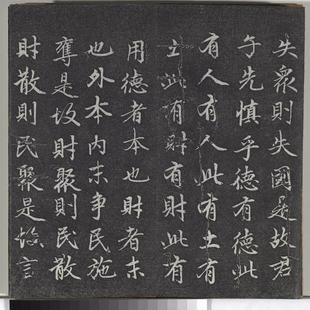 失衆則失國是故君
子先慎乎德有德此
有人有人此有土有
土此有財有財此有
用德者本也財者末
也外本内末爭民施
奪是故財聚則民散
財散則民聚是故言